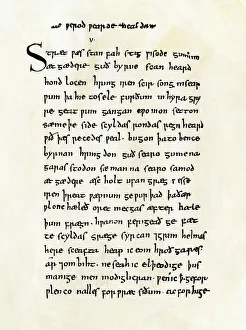 werod wearde healdan
V
Stræt wæs stan fah stig wisode gumum
æt gædere guð byrne scan heard
hond locen hring iren scir song in sear
wum þa hie to sele furðum in hyra gry
re geat wum gangan cwomon setton
sæ meþe side scyldas rondas regn heard
wið þæs recedes weal bugon þa to bence
byrnan hring don guð searo gumena
garas stodon sæ manna searo samod
æt gædere æsc holt ufan græg wæs se
iren þreat wæpnum ge wurþad þa ðær
wlonc hæleð oret mecgas æfter hæle
þum frægn hwanon ferigeað ge fæt
te scyldas græge syrcan ⁊ grim helmas
here sceafta heap ic eom hroð gares
ar ⁊ om biht ne seah ic elþeodige þus
manige men modiglicran wen ic ꝥ ge for
wlenco nalles for wræc siðum ac for hige